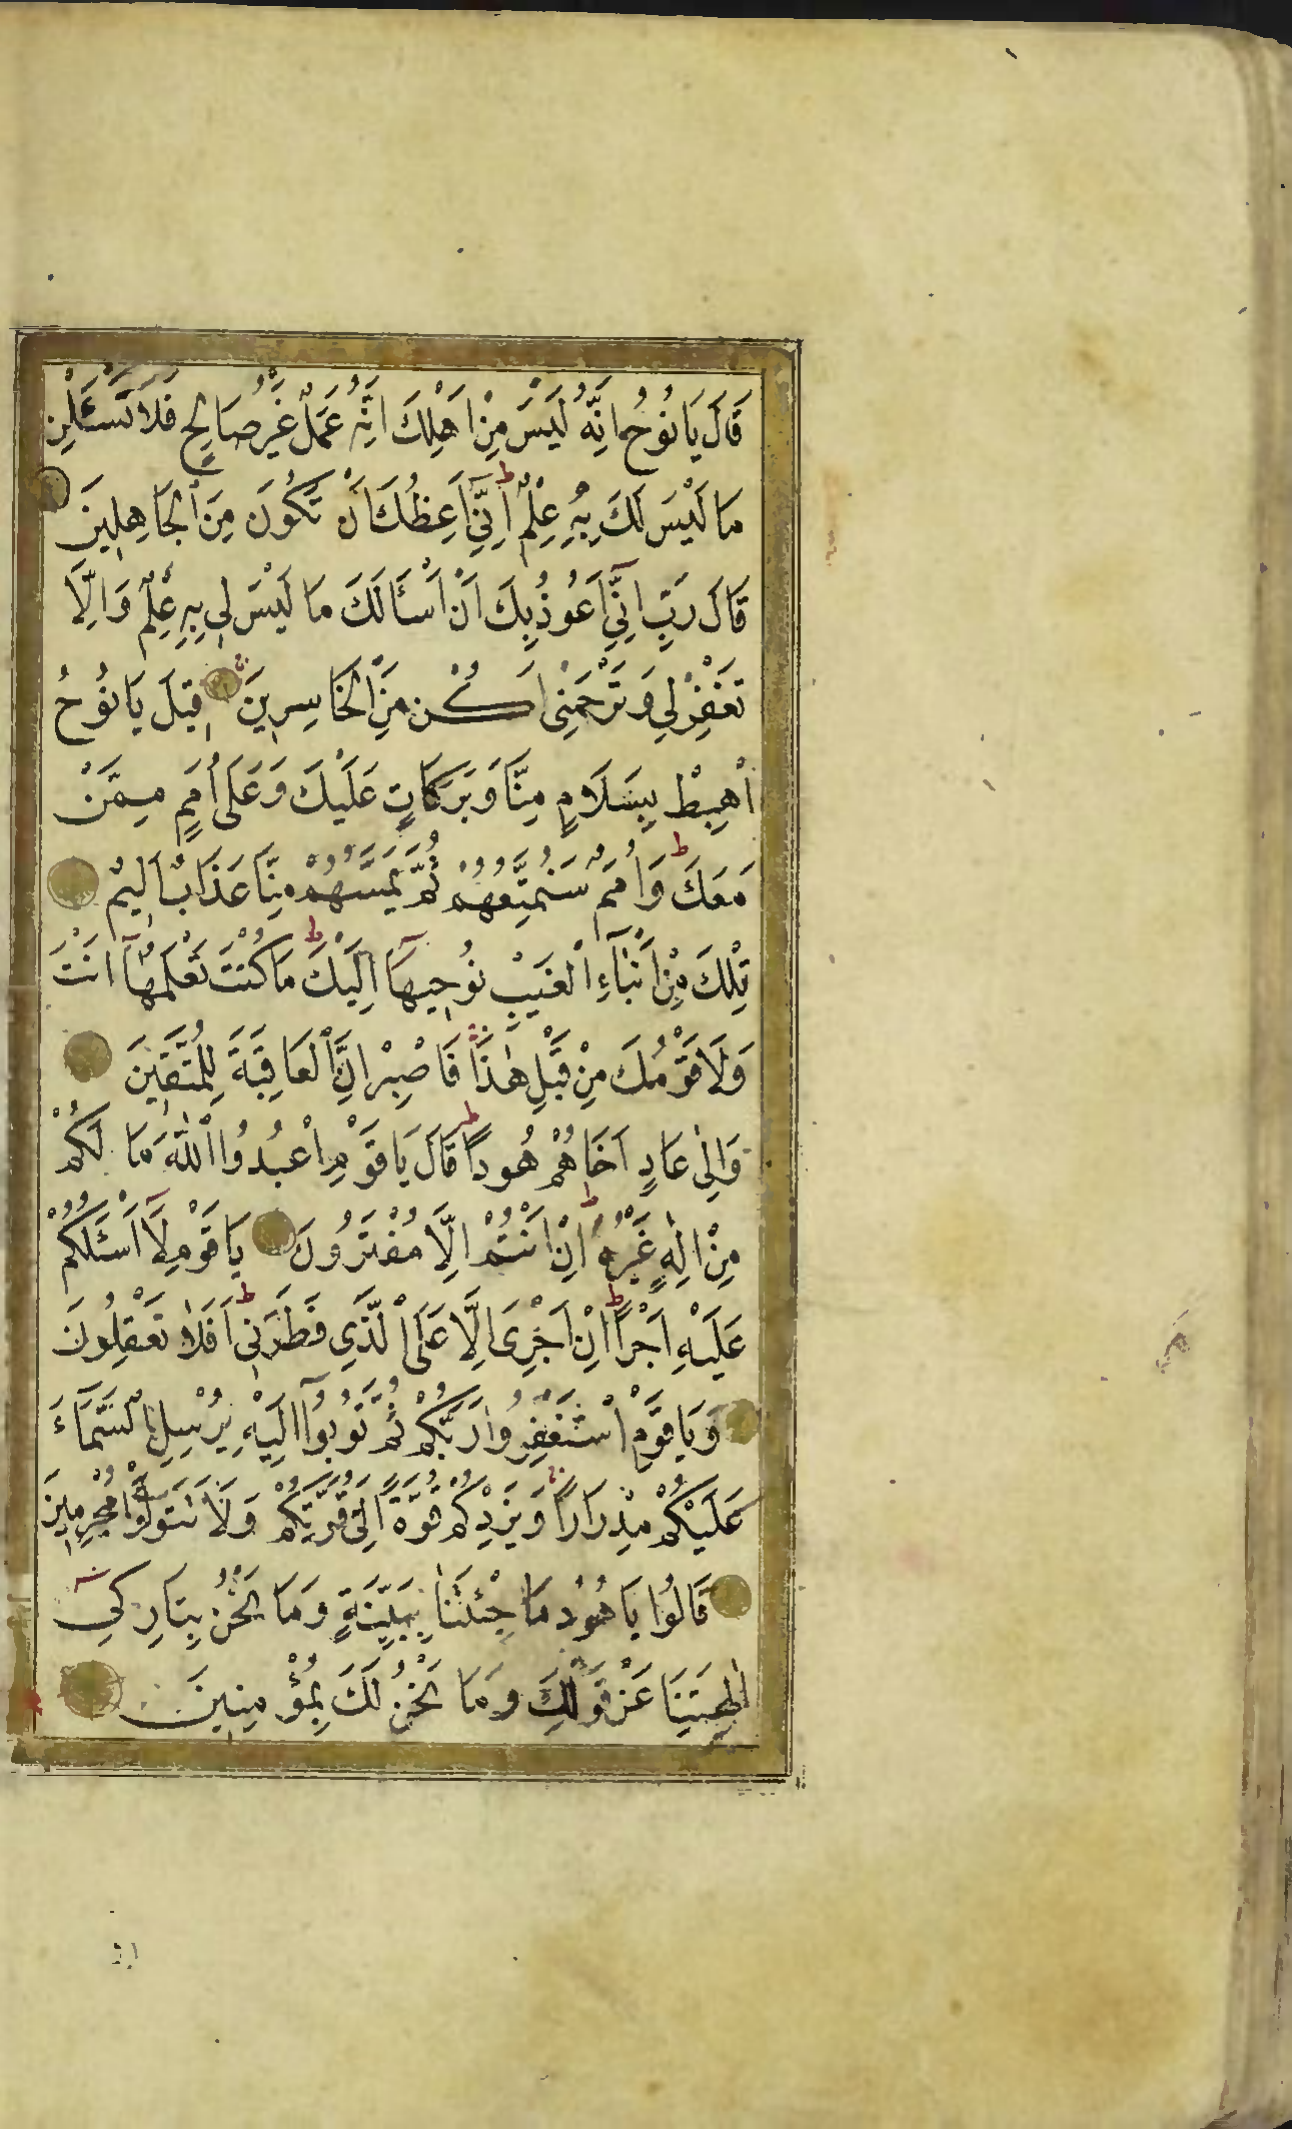 قَالَ يَا نُوحُ اِنَّهُ لَيْسَ مِنْ اَهْلِكَ اِنَّهُ عَمَلٌ غَيْرُ صَالِحٍ فَلَا تَسْئَلْنِ
مَا لَيْسَ لَكَ بِهِ عِلْمٌ اِنِّي اَعِظُكَ اَنْ تَكُونَ مِنَ الْجَاهِلِينَ
قَالَ رَبِّ اِنِّي اَعُوذُ بِكَ اَنْ اَسْئَالَكَ مَا لَيْسَ لِي بِهِ عِلْمٌ وَاِلَّا
تَغْفِرْ لِي وَتَرْحَمْنِي اَكُنْ مِنَ الْخَاسِرِينَ قِيلَ يَا نُوحُ
اهْبِطْ بِسَلَامٍ مِنَّا وَبَرَكَاتٍ عَلَيْكَ وَعَلَى اُمَمٍ مِمَّنْ
مَعَكَ وَاُمَمٌ سَنُمَتِّعُهُمْ ثُمَّ يَمَسُّهُمْ مِنَّا عَذَابٌ اَلِيمٌ
تِلْكَ مِنْ اَنْبَاءِ الْغَيْبِ نُوحِيهَا اِلَيْكَ مَا كُنْتَ تَعْلَمُهَا اَنْتَ
وَلَا قَوْمُكَ مِنْ قَبْلِ هٰذَا فَاصْبِرْ اِنَّ الْعَاقِبَةَ لِلْمُتَّقِينَ
وَاِلٰى عَادٍ اَخَاهُمْ هُودًا قَالَ يَا قَوْمِ اعْبُدُوا اللّٰهَ مَا لَكُمْ
مِنْ اِلٰهٍ غَيْرُهُ اِنْ اَنْتُمْ اِلَّا مُفْتَرُونَ يَا قَوْمِ لَا اَسْئَلُكُمْ
عَلَيْهِ اَجْرًا اِنْ اَجْرِيَ اِلَّا عَلَى الَّذِي فَطَرَنِي اَفَلَا تَعْقِلُونَ
وَيَا قَوْمِ اسْتَغْفِرُوا رَبَّكُمْ ثُمَّ تُوبُوا اِلَيْهِ يُرْسِلِ السَّمَاءَ
عَلَيْكُمْ مِدْرَارًا وَيَزِدْكُمْ قُوَّةً اِلٰى قُوَّتِكُمْ وَلَا تَتَوَلَّوْا مُجْرِمِينَ
قَالُوا يَا هُودُ مَا جِئْتَنَا بِبَيِّنَةٍ وَمَا نَحْنُ بِتَارِكِي
اٰلِهَتِنَا عَنْ قَوْلِكَ وَمَا نَحْنُ لَكَ بِمُؤْمِنِينَ